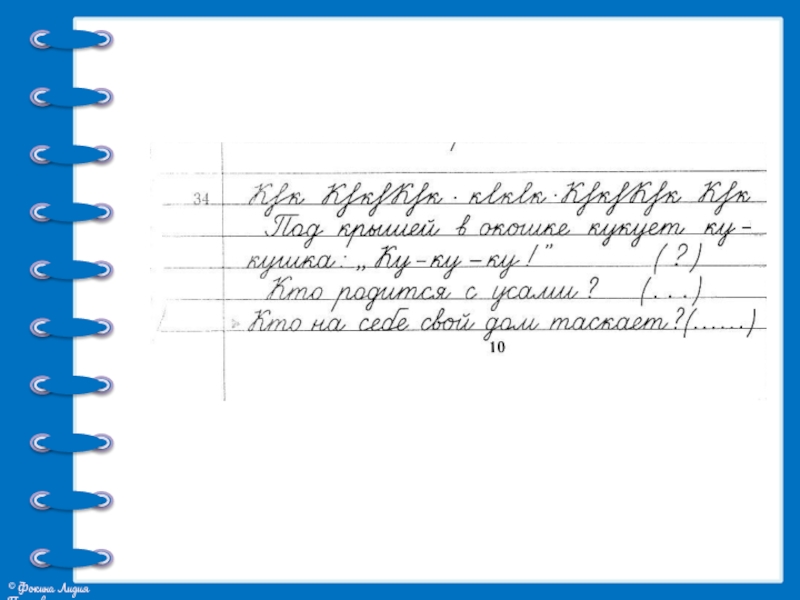 34 К к К к К к · к к к · К к К к К к
Под крышей в окошке кукует ку-
кушка: „Ку-ку-ку!” (?)
Кто родится с усами? (...)
Кто на себе свой дом таскает? (......)
10
© Фокина Лидия